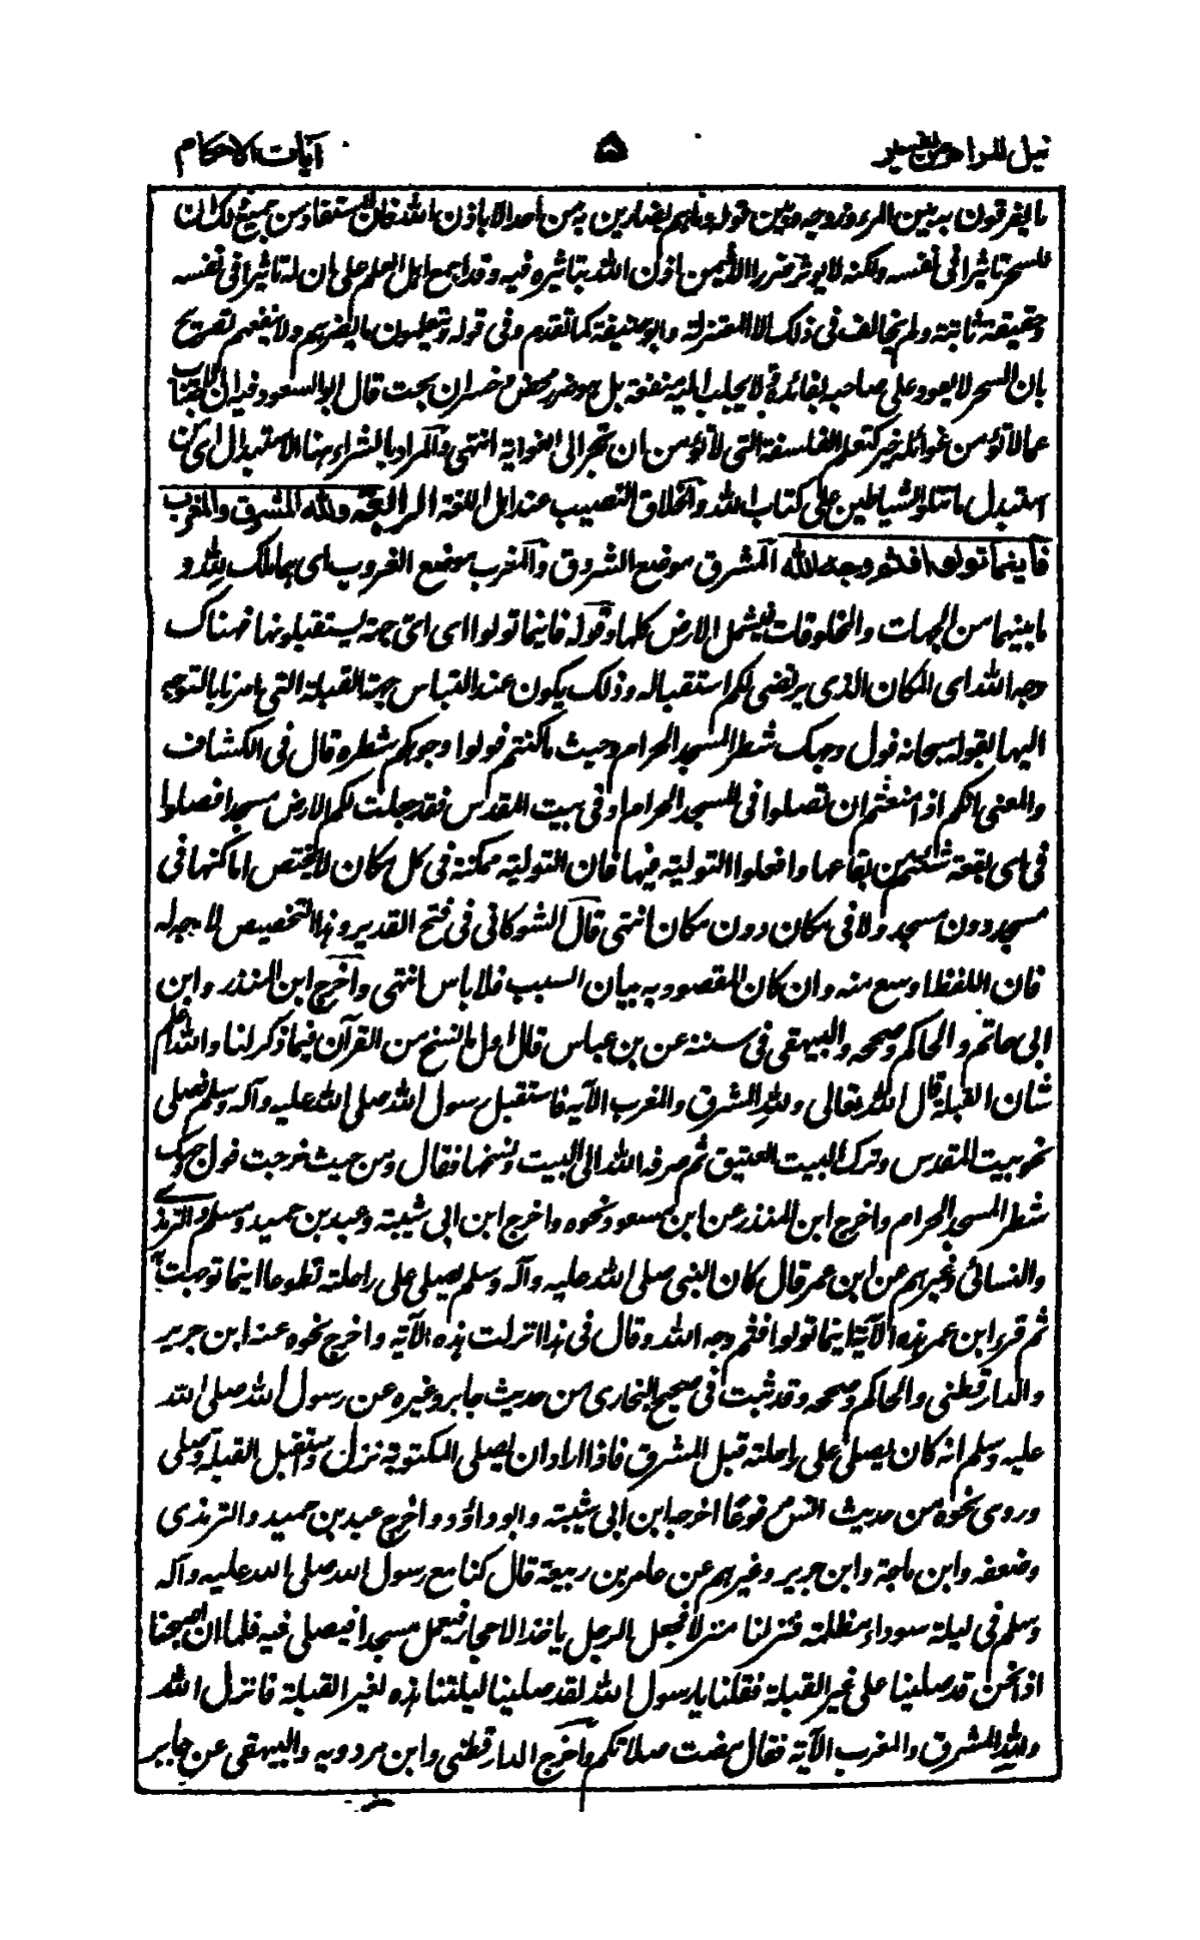 نيل المرام من تفسير ٥ آيات الاحكام
ما يفرقون به بين المرء وزوجه وبين قوله وما هم بضارين به من أحد الا باذن الله فان المستفاد من جميع ذلك ان
للسحر تاثيرا فى نفسه ولكنه لا يوثر ضررا الا فيمن اذن الله بتاثيره فيه وقد اجمع اهل العلم على ان له تاثيرا فى نفسه
وحقيقة ثابتة ولم يخالف فى ذلك الا المعتزلة وابو حنيفة كما تقدم وفى قوله ويتعلمون ما يضرهم ولا ينفعهم تصريح
بان السحر لا يعود على صاحبه بفائدة ولا يجلب اليه منفعة بل هو ضرر محض وخسران بحت قال ابو السعود فيه ان الاجتناب
عما لا تؤمن غوائله خير كتعلم الفلسفة التى لا تؤمن ان تجر الى الغواية انتهى والمراد بالشراء هنا الاستبدال اى من
استبدل ما تتلو الشياطين على كتاب الله والخلاق النصيب عند اهل اللغة الرابعة ولله المشرق والمغرب
فأينما تولوا فثم وجه الله المشرق موضع الشروق والمغرب موضع الغروب اى هما ملك لله و
ما بينهما من الجهات والمخلوقات فيشمل الارض كلها وقوله فاينما تولوا اى اىّ جهة تستقبلونها فهناك
وجه الله اى المكان الذى يرتضى لكم استقباله وذلك يكون عند التباس جهة القبلة التى امرنا بالتوجه
اليها بقوله سبحانه فول وجهك شطر المسجد الحرام وحيث ما كنتم فولوا وجوهكم شطره قال فى الكشاف
والمعنى انكم اذا منعتم ان تصلوا فى المسجد الحرام او فى بيت المقدس فقد جعلت لكم الارض مسجدا فصلوا
فى اى بقعة شئتم من بقاعها وافعلوا التولية فيها فان التولية ممكنة فى كل مكان لا يختص اماكنها فى
مسجد دون مسجد ولا فى مكان دون مكان انتهى قال الشوكانى فى فتح القدير وهذا التخصيص لا وجه له
فان اللفظ اوسع منه وان كان المقصود به بيان السبب فلا باس انتهى واخرج ابن المنذر وابن
ابى حاتم والحاكم وصححه والبيهقى فى سننه عن بن عباس قال اول ما نسخ من القرآن فيما ذكر لنا والله اعلم
شان القبلة قال الله تعالى ولله المشرق والمغرب الآية فاستقبل رسول الله صلى الله عليه وآله وسلم فصلى
نحو بيت المقدس وترك البيت العتيق ثم صرفه الله الى البيت ونسخها فقال ومن حيث خرجت فول وجهك
شطر المسجد الحرام واخرج ابن المنذر عن ابن مسعود نحوه واخرج ابن ابى شيبة وعبد بن حميد ومسلم والترمذى
والنسائى وغيرهم عن ابن عمر قال كان النبى صلى الله عليه وآله وسلم يصلى على راحلته تطوعا اينما توجهت به
ثم قرء ابن عمر هذه الآية اينما تولوا فثم وجه الله وقال فى هذا انزلت هذه الآية واخرج نحوه عنه ابن جرير
والدارقطنى والحاكم وصححه وقد ثبت فى صحيح البخارى من حديث جابر وغيره عن رسول الله صلى الله
عليه وسلم انه كان يصلى على راحلته قبل المشرق فاذا اراد ان يصلى المكتوبة نزل واستقبل القبلة وصلى
وروى نحوه من حديث انس مرفوعا اخرجه ابن ابى شيبة وابو داؤد واخرج عبد بن حميد والترمذى
وضعفه وابن ماجة وابن جرير وغيرهم عن عامر بن ربيعة قال كنا مع رسول الله صلى الله عليه وآله
وسلم فى ليلة سوداء مظلمة فنزلنا منزلا فجعل الرجل ياخذ الاحجار فيعمل مسجدا فيصلى فيه فلما ان اصبحنا
اذا نحن قد صلينا على غير القبلة فقلنا يا رسول الله لقد صلينا ليلتنا هذه لغير القبلة فانزل الله
ولله المشرق والمغرب الآية فقال مضت صلاتكم واخرج الدارقطنى وابن مردويه والبيهقى عن جابر